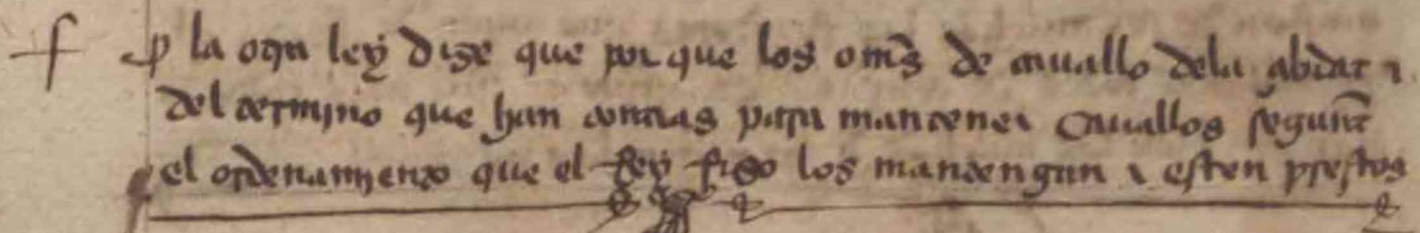 la otra ley dize que por que los oms de cauallo dela çibdat e
del termino que han contias para mantener cauallos segunt
el ordenamiento que el Rey fizo los mantengan e esten prestos